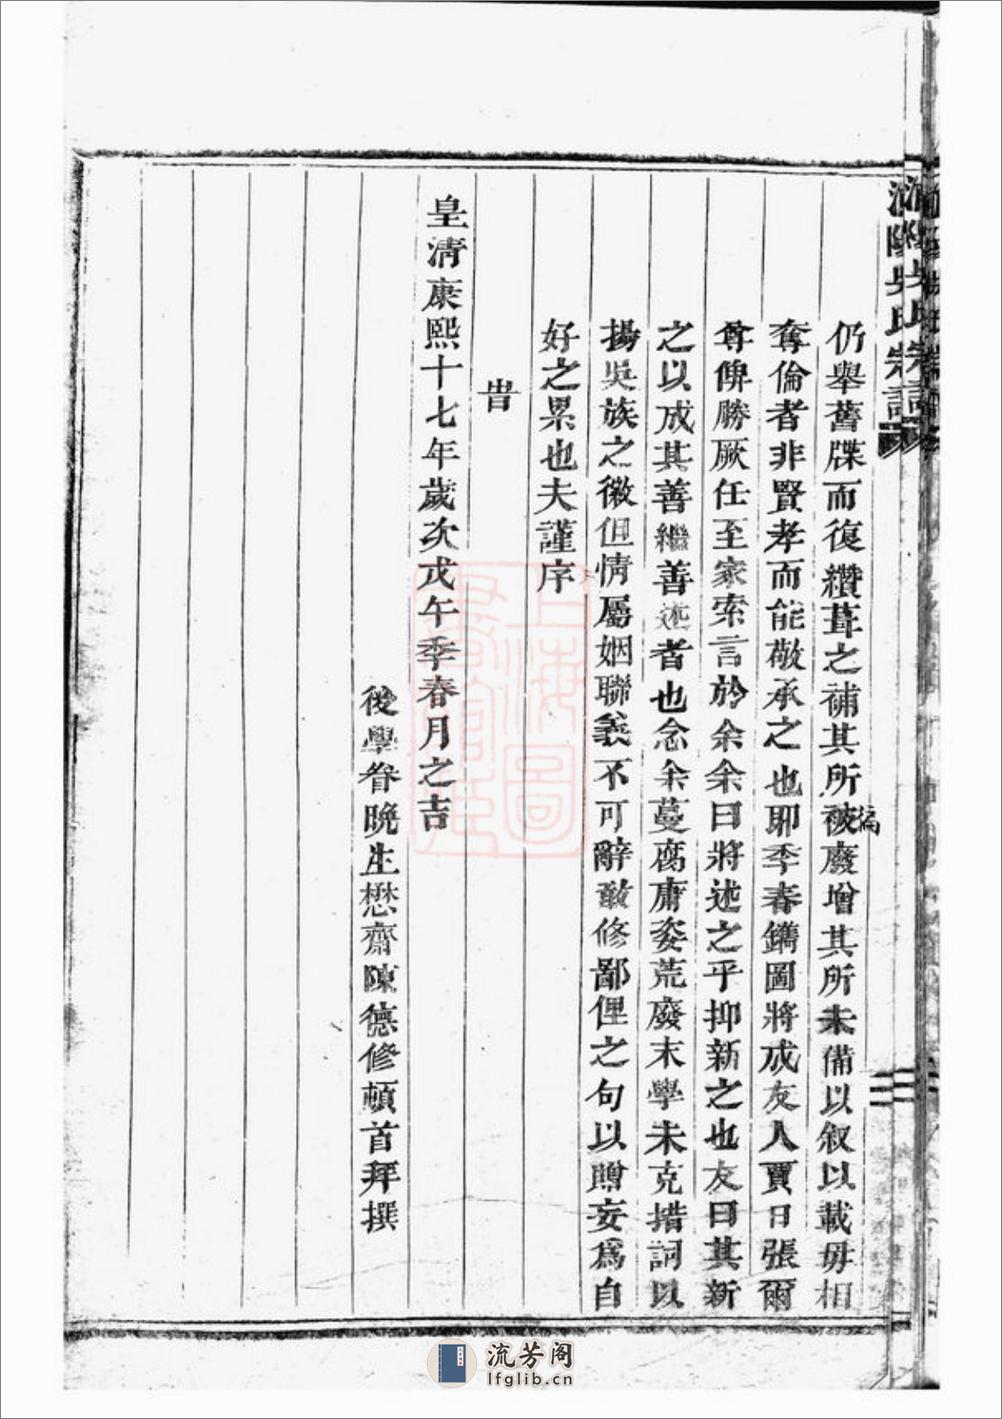 仍舉舊牒而復纘葺之補其所被廢增其所未備以叙以載毋相
編
奪倫者非賢孝而能敬承之也耶季春鐫圖將成友人賈日張爾
尊俾勝厥任至家索言於余余曰將述之乎抑新之也友曰其新
之以成其善繼善述者也念余蔓腐庸姿荒廢末學未克措詞以
揚吳族之徽但情屬姻聯義不可辭敢修鄙俚之句以贈妄爲自
好之累也夫謹序
旹
皇清康熙十七年歲次戊午季春月之吉
後學眷晩生懋齋陳德修頓首拜撰
上海圖書館藏
流芳阁
lfglib.cn